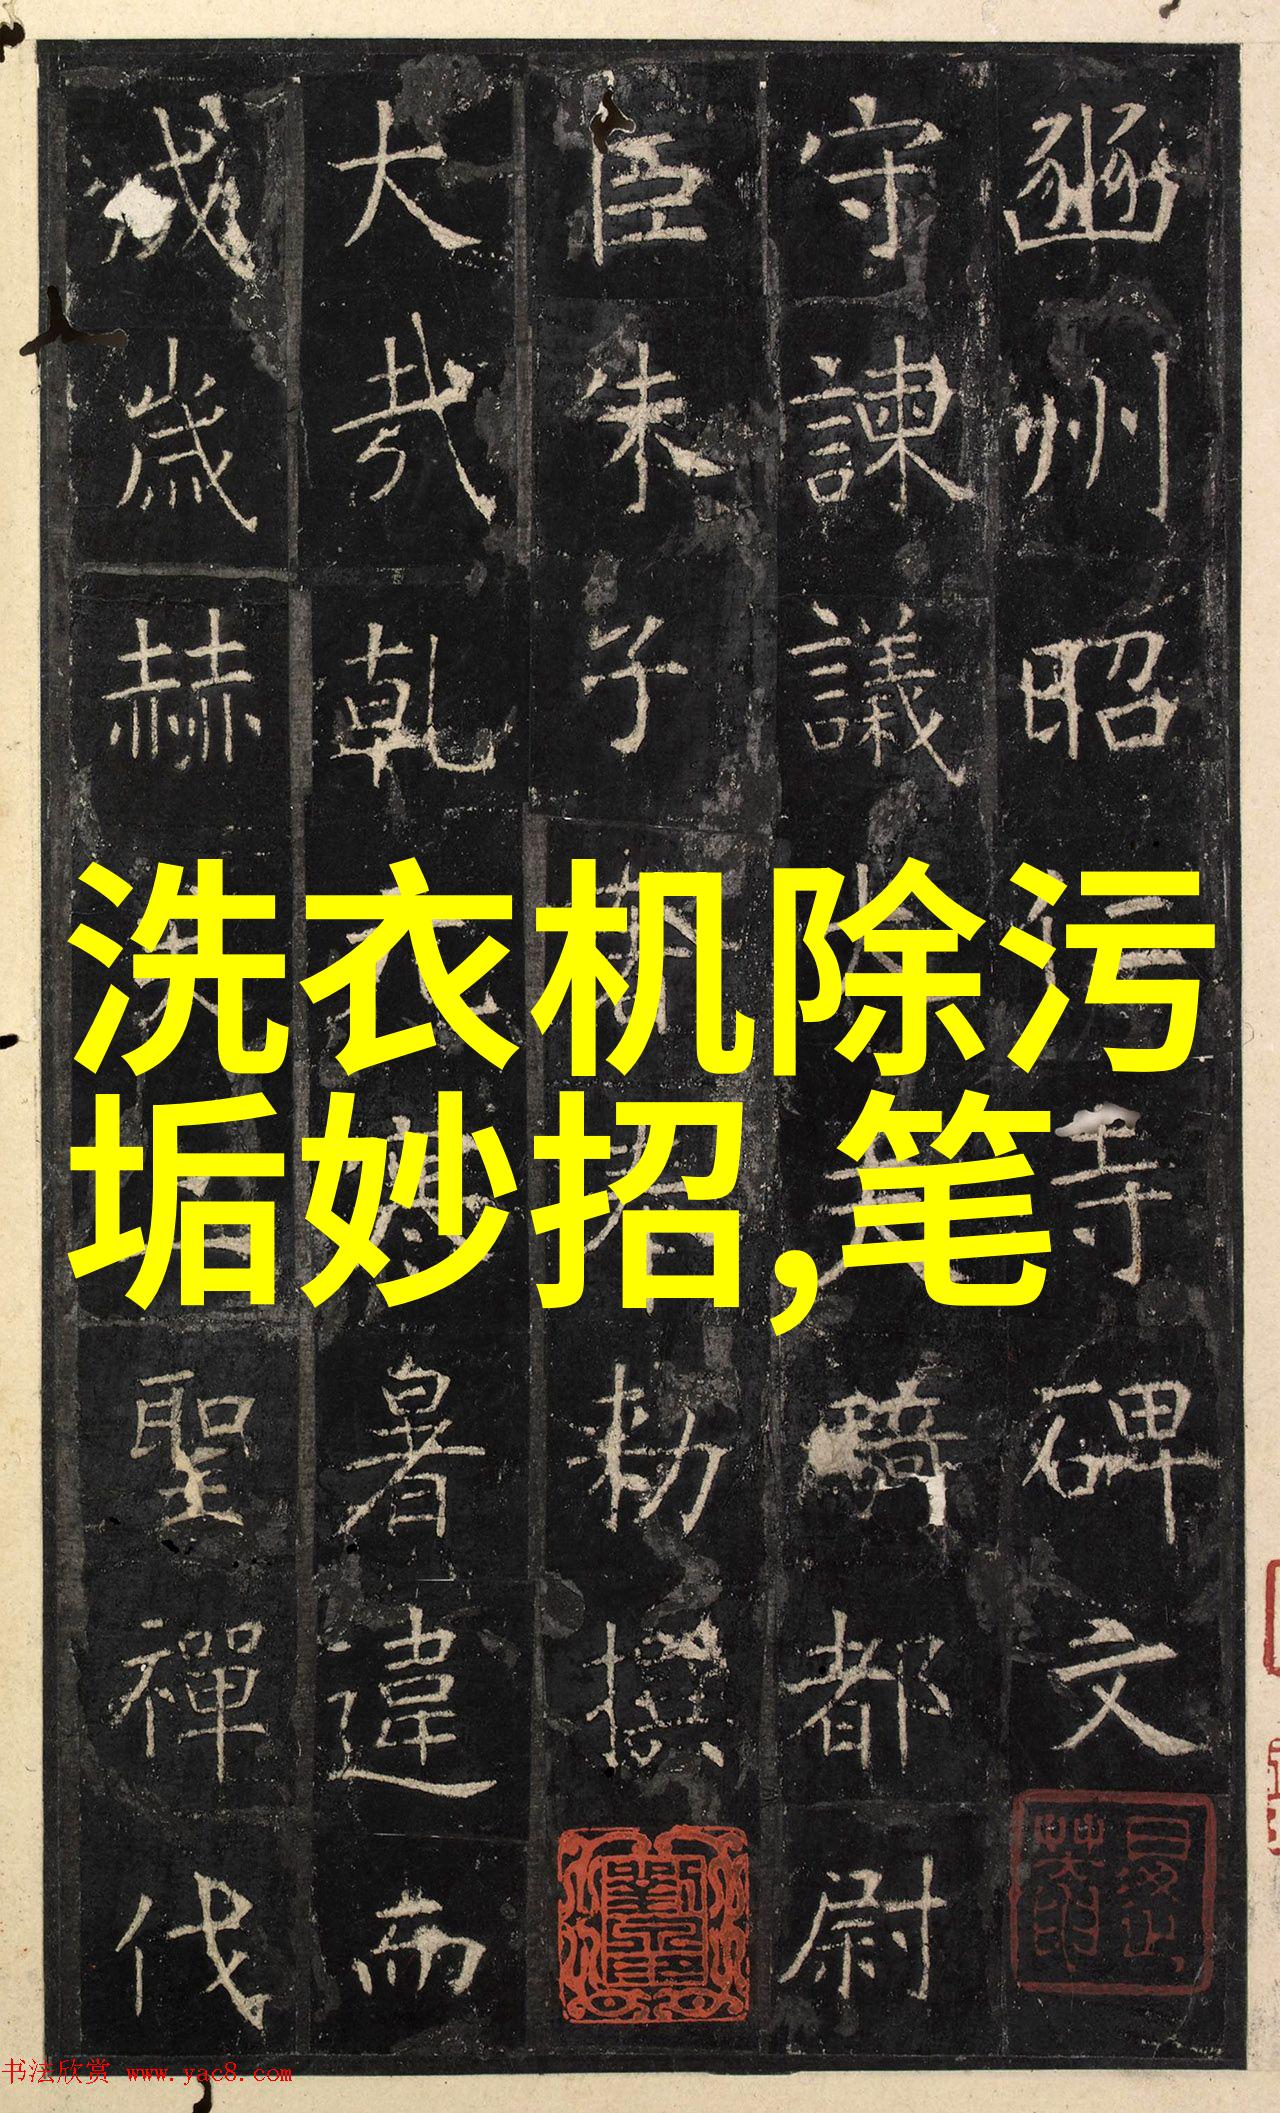 洗衣机除污
垢妙招,笔
豳州昭寺碑文
守諫議騎都尉
臣朱子勑撰
大哉乾暑違而
成歲赫聖禪代
书法欣赏 www.yac8.com